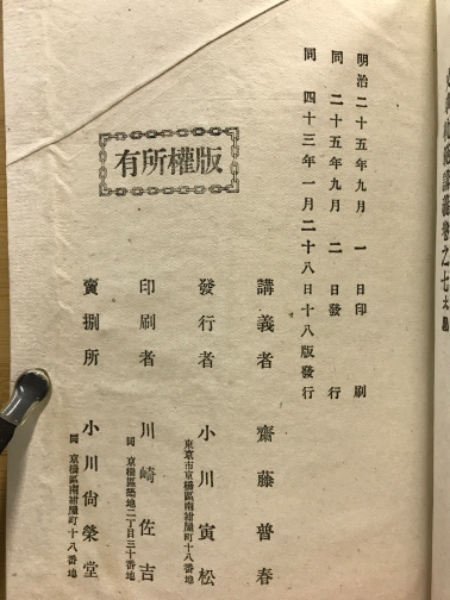 明治二十五年九月一日印刷
同二十五年九月二日發行
同四十三年一月二十八日十八版發行
版權所有
講義者 齋藤普春
發行者 小川寅松
東京市京橋區南紺屋町十八番地
印刷者 川崎佐吉
同京橋區築地二丁目三十番地
賣捌所 小川尙榮堂
同京橋區南紺屋町十八番地
講義卷之七大尾